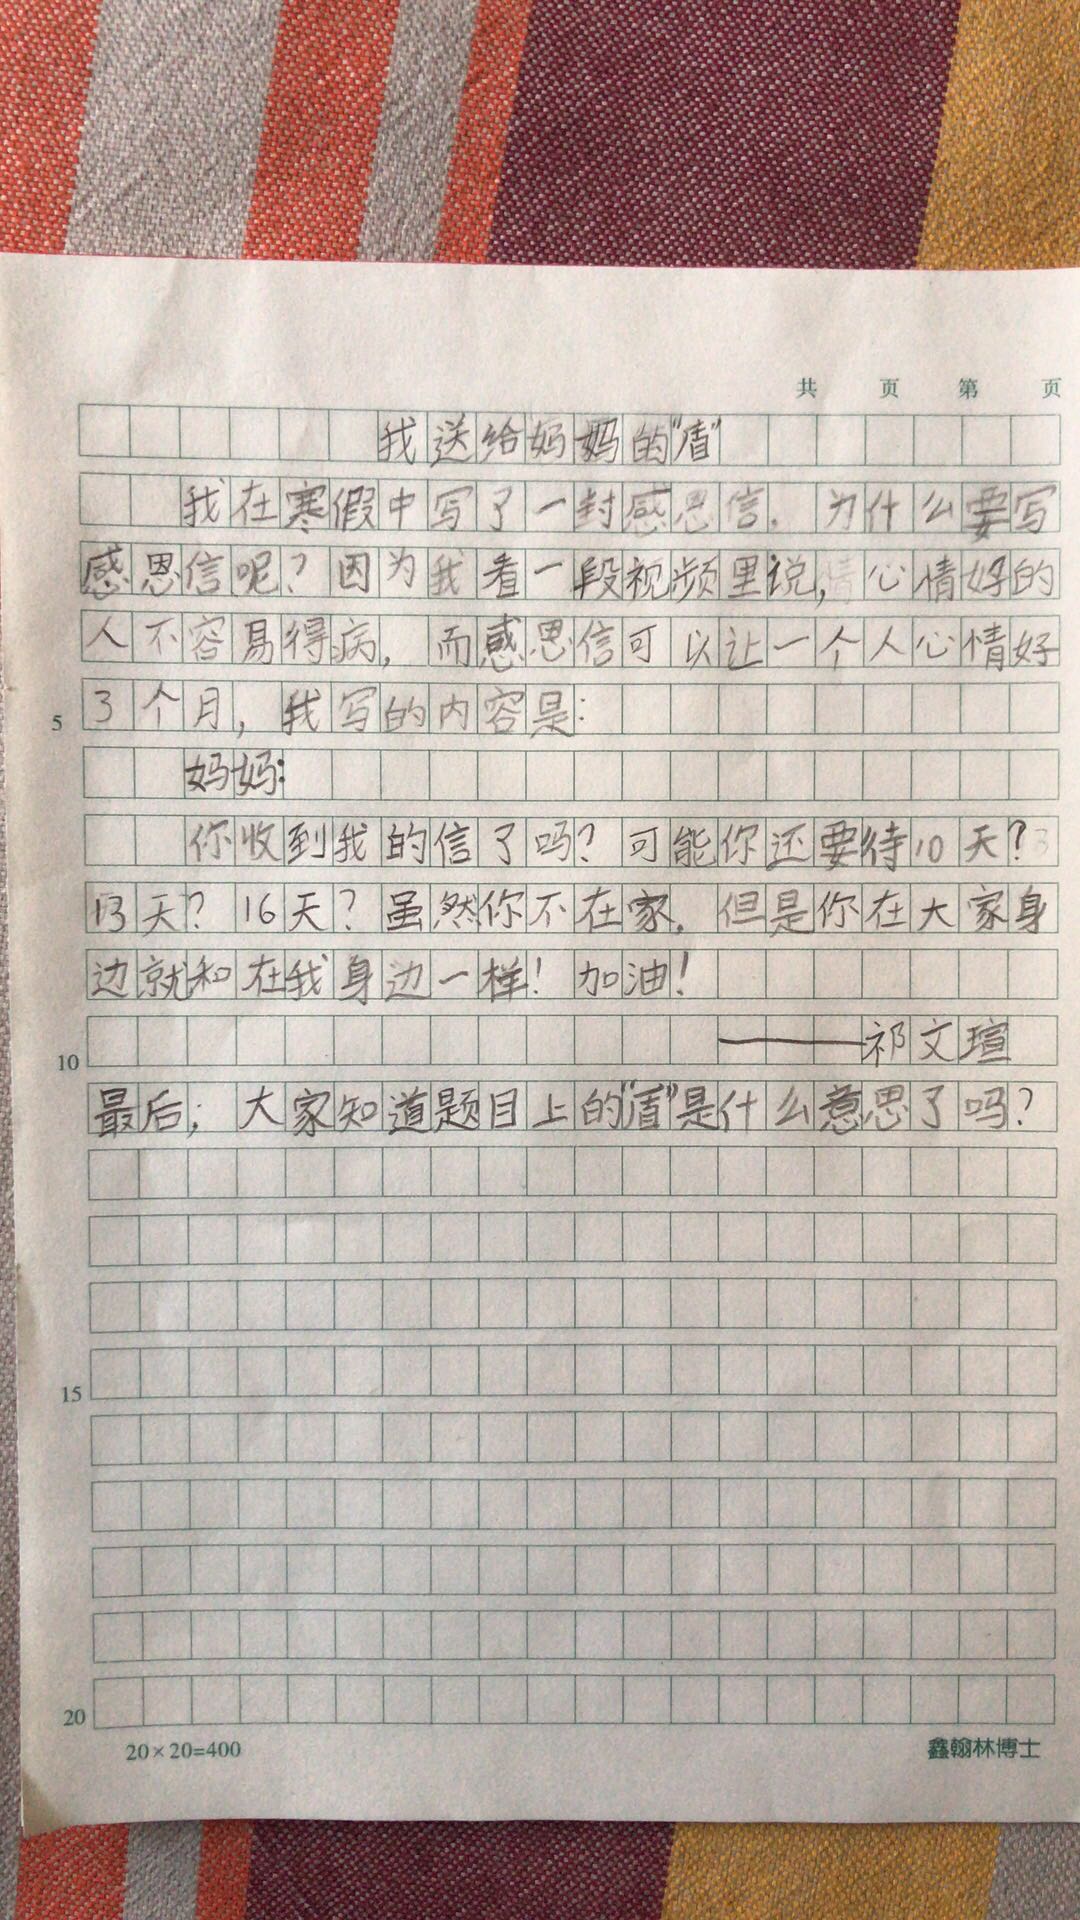 共 页 第 页
我送给妈妈的“盾”
我在寒假中写了一封感恩信. 为什么要写
感恩信呢? 因为我看一段视频里说, 心情好的
人不容易得病, 而感恩信可以让一个人心情好
3个月, 我写的内容是:
5
妈妈:
你收到我的信了吗? 可能你还要待10天?
13天? 16天? 虽然你不在家. 但是你在大家身
边就和在我身边一样! 加油!
10
———祁文瑄
最后; 大家知道题目上的“盾”是什么意思了吗?
15
20
20×20=400 鑫翰林博士